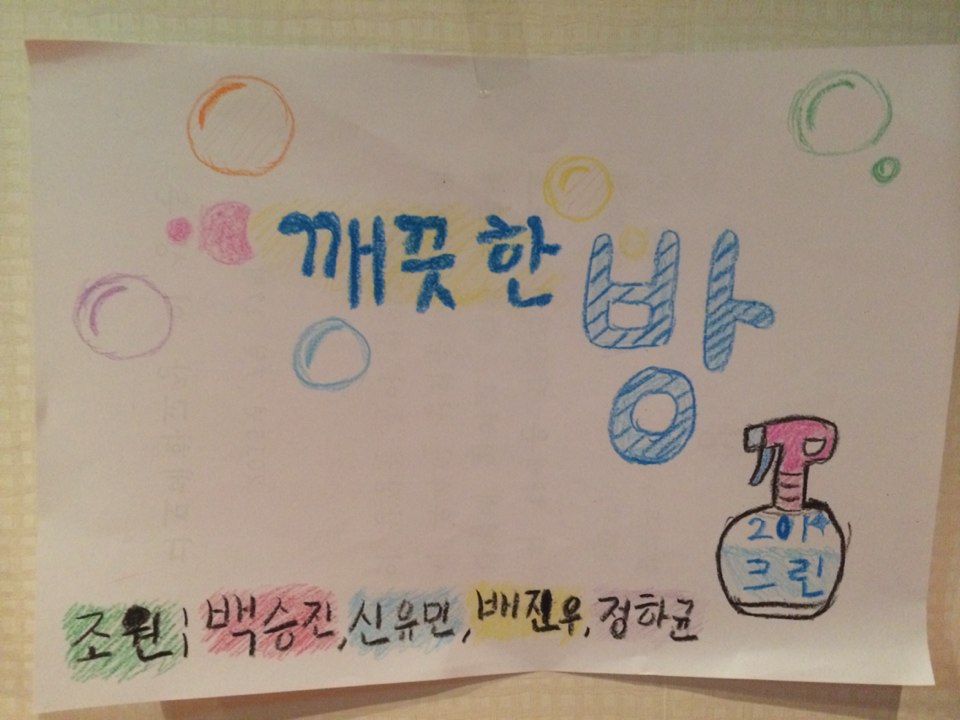 깨끗한 방
2014
크린
조원; 백승진, 신유민, 배진우, 정하균